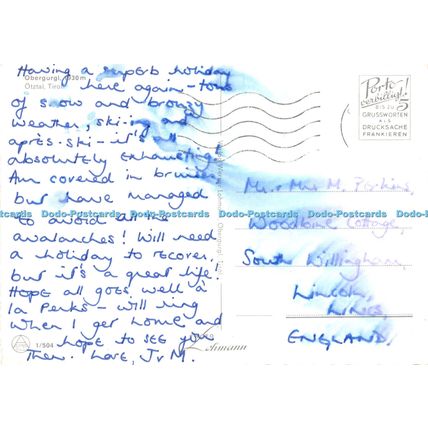 Obergurgl, 1930m
Ötztal, Tirol
Having a superb holiday
here again - tons
of snow and bronzy
weather, ski-ing and
après-ski - it's all
absolutely exhausting!
Am covered in bruises
but have managed
to avoid all the
avalanches! Will need
a holiday to recover,
but it's a great life!
Hope all goes well à
la Perks - will ring
when I get home and
hope to see you
then. Love, J & M.
1/504
Lohmann
Porto
verbilligt!
BIS ZU 5
GRUSSWORTEN
ALS
DRUCKSACHE
FRANKIEREN
Mr. & Mrs M. Perkins,
Woodbine Cottage,
South Willingham,
Lincoln,
LINCS,
ENGLAND.
Dodo-Postcards Dodo-Postcards Dodo-Postcards Dodo-Postcards Dodo-Postcards